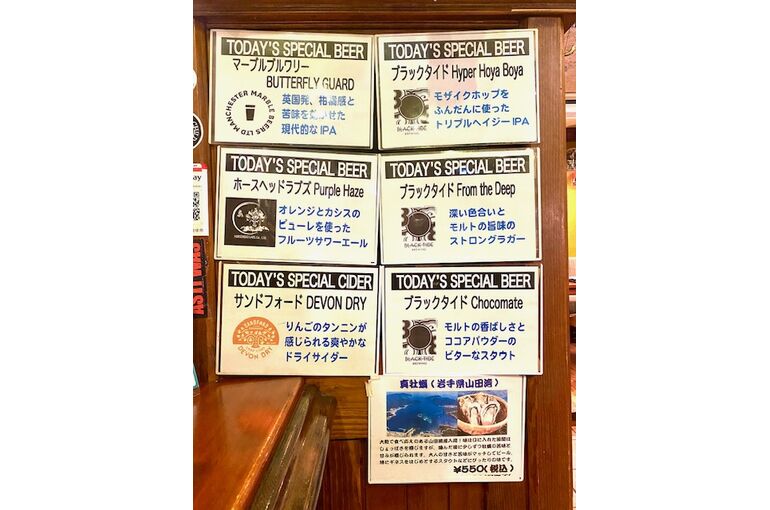 TODAY'S SPECIAL BEER
マーブルブルワリー
BUTTERFLY GUARD
MANCHESTER MARBLE BEERS LTD
英国発、柑橘感と
苦味を効かせた
現代的なIPA
TODAY'S SPECIAL BEER
ブラックタイド Hyper Hoya Boya
BLACK TIDE
BREWING
モザイクホップを
ふんだんに使った
トリプルヘイジーIPA
TODAY'S SPECIAL BEER
ホースヘッドラブズ Purple Haze
オレンジとカシスの
ピューレを使った
フルーツサワーエール
TODAY'S SPECIAL BEER
ブラックタイド From the Deep
BLACK TIDE
BREWING
深い色合いと
モルトの旨味の
ストロングラガー
TODAY'S SPECIAL CIDER
サンドフォード DEVON DRY
SANDFORD
DEVON DRY
りんごのタンニンが
感じられる爽やかな
ドライサイダー
TODAY'S SPECIAL BEER
ブラックタイド Chocomate
BLACK TIDE
BREWING
モルトの香ばしさと
ココアパウダーの
ビターなスタウト
真牡蠣(岩手県山田湾)
¥550(税込)